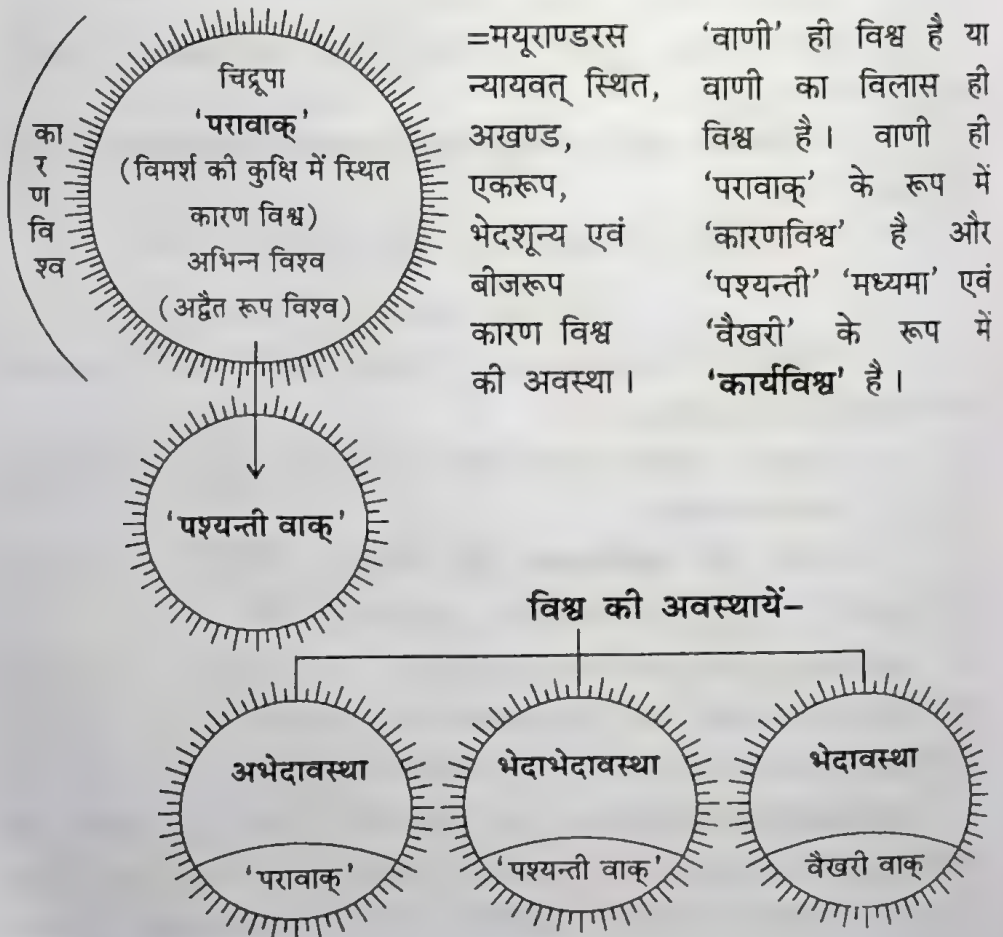 का
र
ण
वि
श्व
चिद्रूपा
'परावाक्'
(विमर्श की कुक्षि में स्थित
कारण विश्व)
अभिन्न विश्व
(अद्वैत रूप विश्व)
=मयूराण्डरस
न्यायवत् स्थित,
अखण्ड,
एकरूप,
भेदशून्य एवं
बीजरूप
कारण विश्व
की अवस्था।
'वाणी' ही विश्व है या
वाणी का विलास ही
विश्व है। वाणी ही
'परावाक्' के रूप में
'कारणविश्व' है और
'पश्यन्ती' 'मध्यमा' एवं
'वैखरी' के रूप में
'कार्यविश्व' है।
'पश्यन्ती वाक्'
विश्व की अवस्थायें-
अभेदावस्था
'परावाक्'
भेदाभेदावस्था
'पश्यन्ती वाक्'
भेदावस्था
वैखरी वाक्